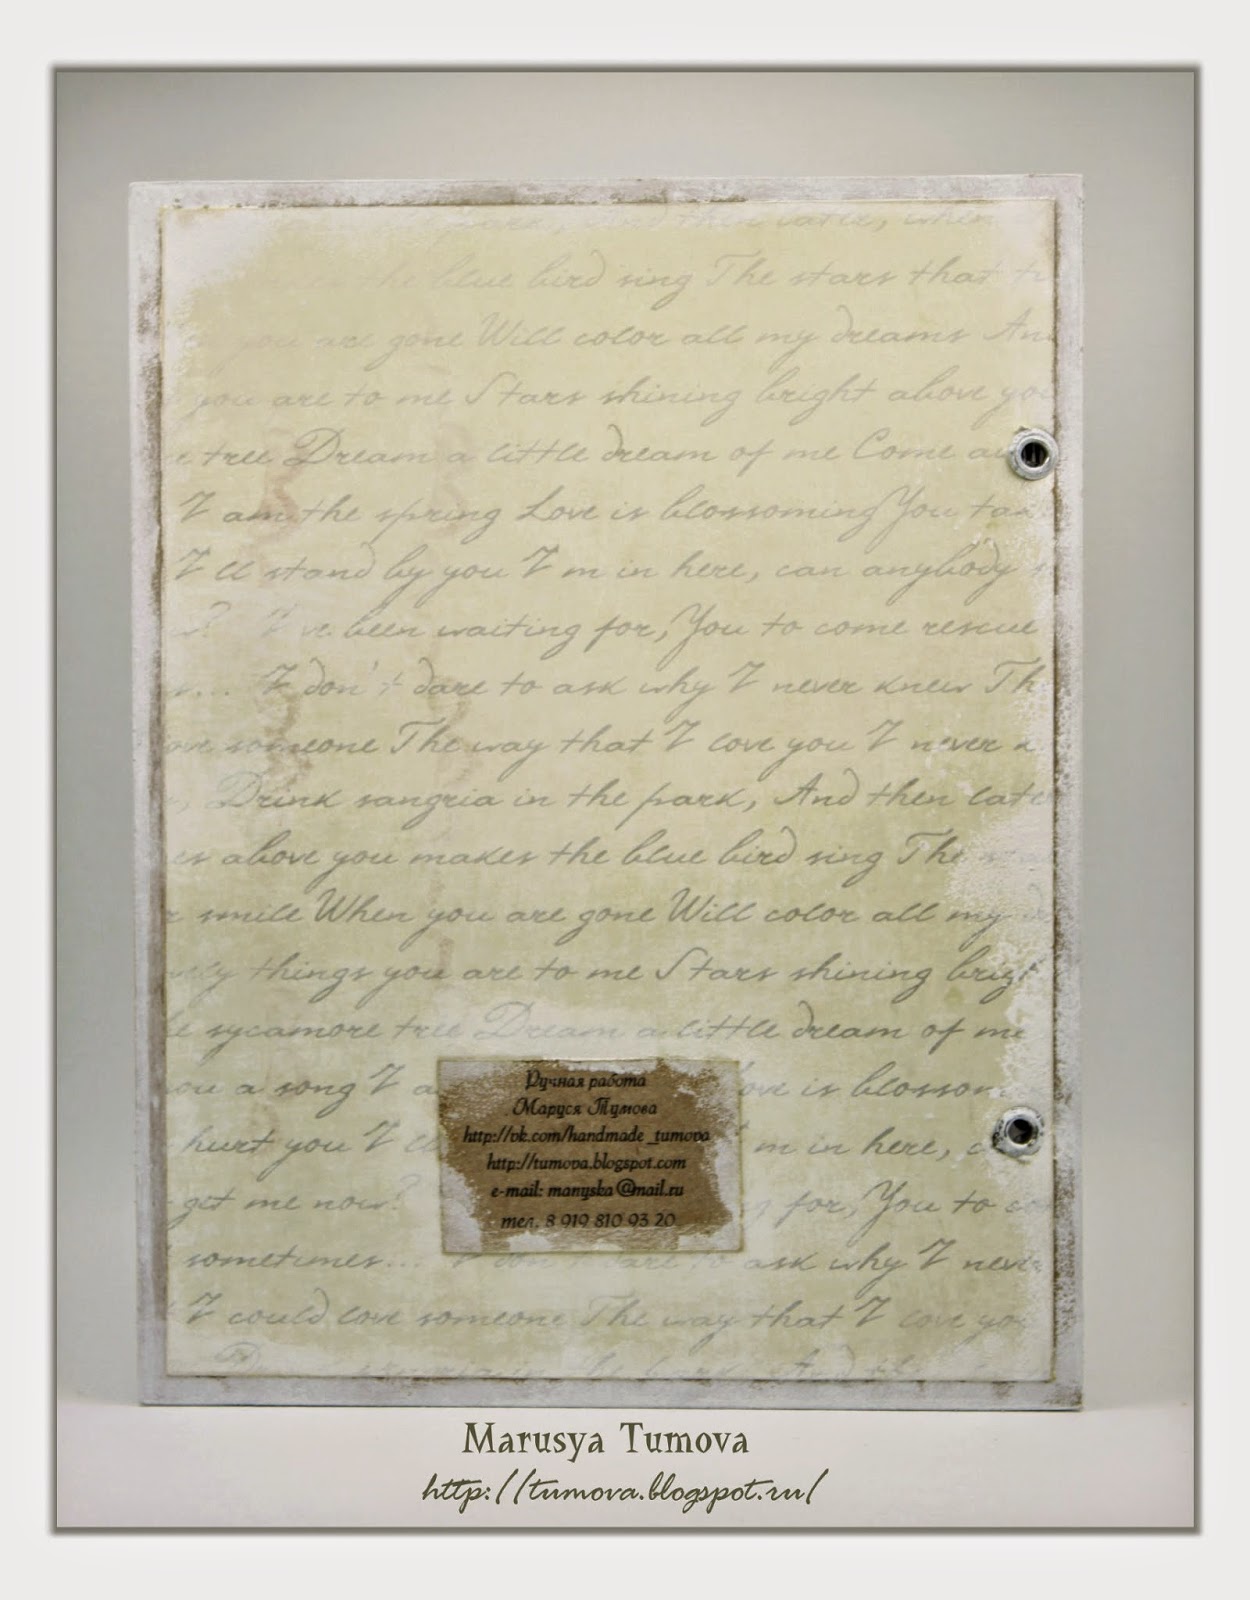 park, And then later, when
the blue bird sing The stars that
you are gone Will color all my dreams And
you are to me Stars shining bright above you
tree Dream a little dream of me Come
I am the spring Love is blossoming You
I ll stand by you I m in here, can anybody
I've been waiting for, You to come rescue
I don't dare to ask why I never knew
someone The way that I love you I never
Drink sangria in the park, And then late
above you makes the blue bird sing The
smile When you are gone Will color all my
things you are to me Stars shining brigh
sycamore tree Dream a little dream of me
you a song I is blossom
hurt you I m in here,
get me now? for, You to
sometimes... I don't dare to ask why I never
I could love someone The way that I love yo
Ручная работа
Маруся Тумова
http://vk.com/handmade_tumova
http://tumova.blogspot.com
e-mail: manyska@mail.ru
тел. 8 919 810 93 20
Marusya Tumova
http://tumova.blogspot.ru/